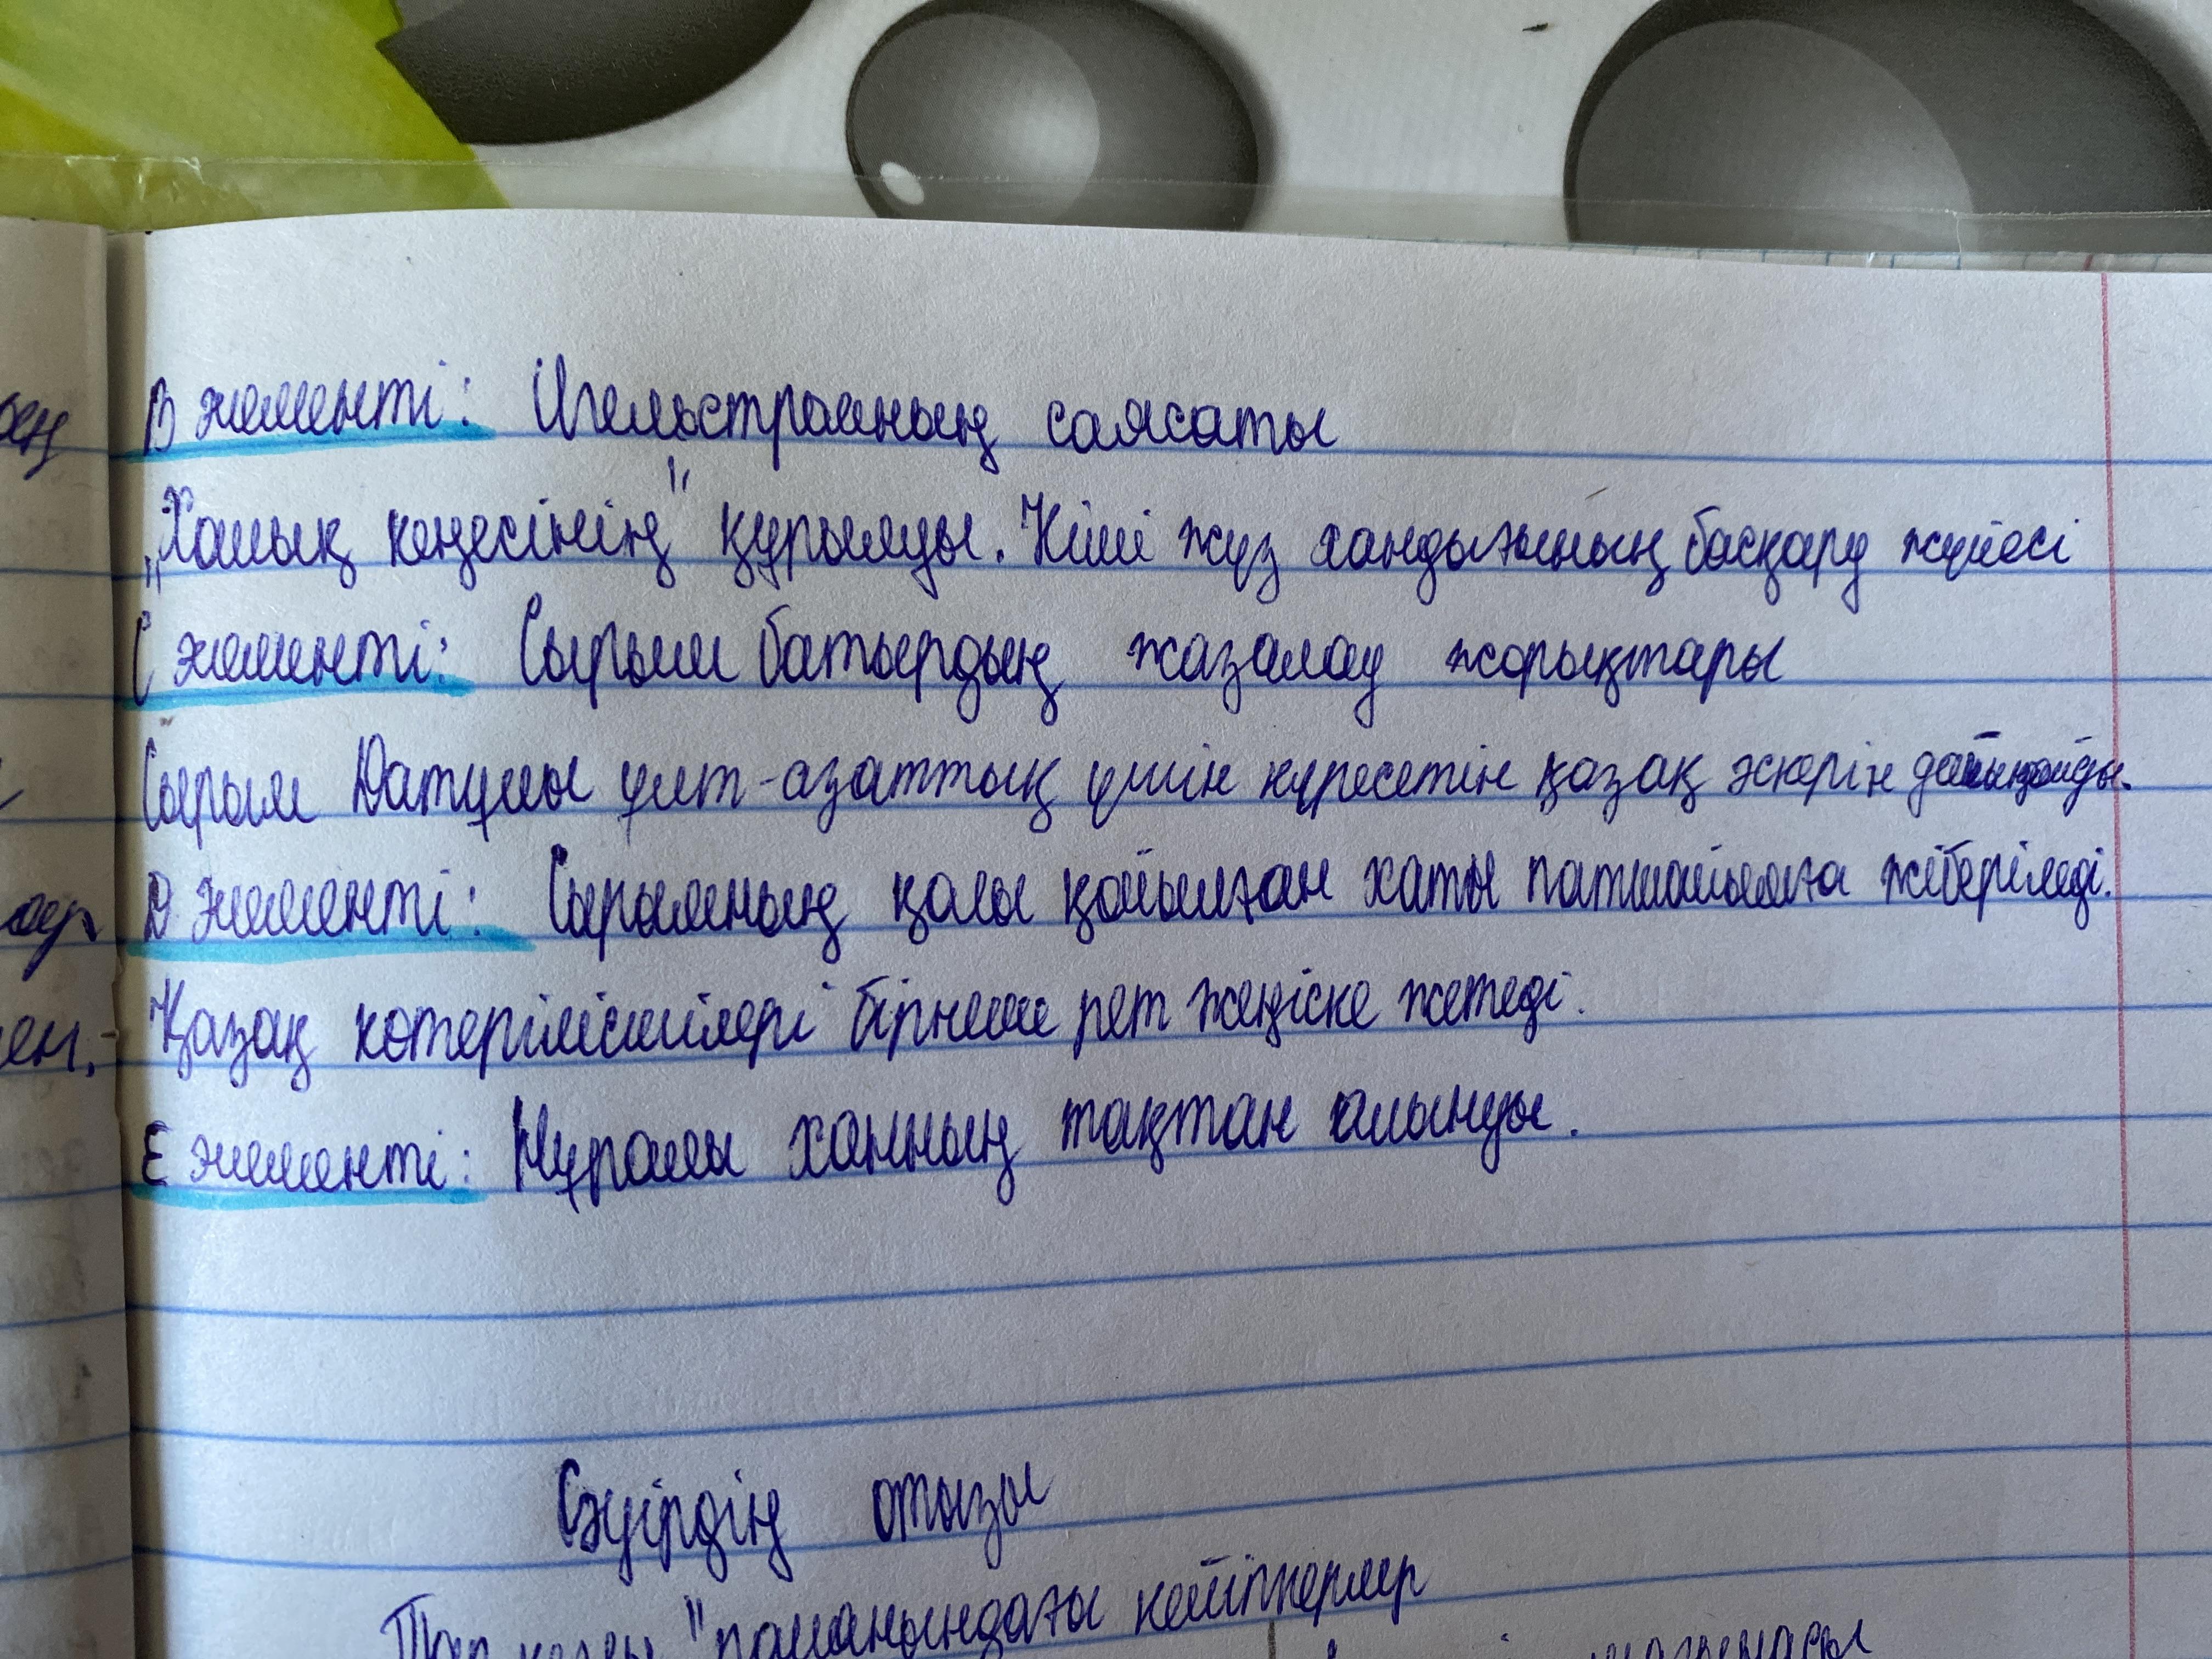 В элементі: Игельстромның саясаты
„Халық кеңесінің" құрылуы. Кіші жүз хандығының басқару жүйесі
С элементі: Сырым батырдың жазалау жорықтары
Сырым Датұлы ұлт-азаттық үшін күресетін қазақ әскерін дайындайды.
D элементі: Сырымның қолы қойылған хаты патшайымға жіберіледі.
Қазақ көтерілісшілері бірнеше рет жеңіске жетеді.
Е элементі: Нұралы ханның тақтан алынуы.
Сәуірдің отызы
романындағы кейіпкерлер